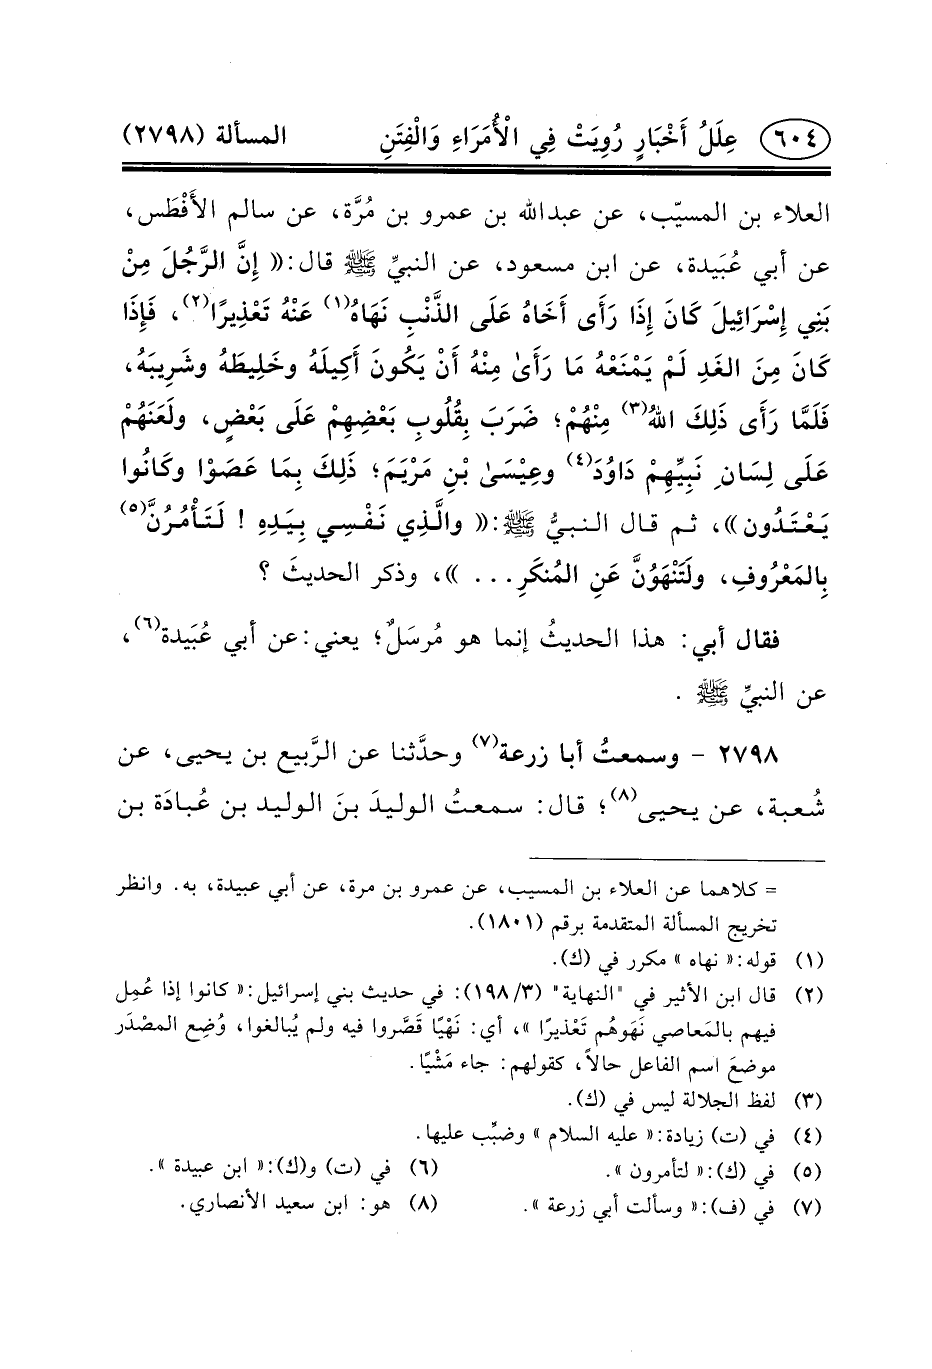 ٦٠٤ عِلَلُ أَخْبَارٍ رُوِيَتْ فِي الْأُمَرَاءِ وَالْفِتَنِ المسألة (٢٧٩٨)
العلاء بن المسيّب، عن عبدالله بن عمرو بن مُرَّة، عن سالم الأَفْطَس،
عن أبي عُبَيدة، عن ابن مسعود، عن النبيِّ ﷺ قال:« إِنَّ الرَّجُلَ مِنْ
بَنِي إِسْرَائِيلَ كَانَ إِذَا رَأَى أَخَاهُ عَلَى الذَّنْبِ نَهَاهُ(١) عَنْهُ تَعْذِيرًا(٢)، فَإِذَا
كَانَ مِنَ الغَدِ لَمْ يَمْنَعْهُ مَا رَأَىٰ مِنْهُ أَنْ يَكُونَ أَكِيلَهُ وخَلِيطَهُ وشَرِيبَهُ،
فَلَمَّا رَأَى ذَلِكَ اللهُ(٣) مِنْهُمْ؛ ضَرَبَ بِقُلُوبِ بَعْضِهِمْ عَلَى بَعْضٍ، ولَعَنَهُمْ
عَلَى لِسَانِ نَبِيِّهِمْ دَاوُدَ(٤) وعِيْسَىٰ بْنِ مَرْيَمَ؛ ذَلِكَ بِمَا عَصَوْا وكَانُوا
يَعْتَدُون»، ثم قال النبيُّ ﷺ:« والَّذِي نَفْسِي بِيَدِهِ ! لَتَأْمُرُنَّ(٥)
بِالمَعْرُوفِ، ولَتَنْهَوُنَّ عَنِ المُنكَرِ... »، وذكر الحديثَ ؟
فقال أبي: هذا الحديثُ إنما هو مُرسَلٌ؛ يعني:عن أبي عُبَيدة(٦)،
عن النبيِّ ﷺ .
٢٧٩٨ - وسمعتُ أبا زرعة(٧) وحدَّثنا عن الرَّبيع بن يحيى، عن
شُعبة، عن يحيى(٨)؛ قال: سمعتُ الوليدَ بنَ الوليد بن عُبادَة بن
= كلاهما عن العلاء بن المسيب، عن عمرو بن مرة، عن أبي عبيدة، به. وانظر
تخريج المسألة المتقدمة برقم (١٨٠١).
(١) قوله:« نهاه » مكرر في (ك).
(٢) قال ابن الأثير في "النهاية" (١٩٨/٣): في حديث بني إسرائيل:« كانوا إذا عُمِل
فيهم بالمَعاصي نَهَوهُم تَعْذيرًا »، أي: نَهْيًا قَصَّروا فيه ولم يُبالغوا، وُضِع المصْدَر
موضعَ اسم الفاعل حالاً، كقولهم: جاء مَشْيًا.
(٣) لفظ الجلالة ليس في (ك).
(٤) في (ت) زيادة:« عليه السلام » وضبِّب عليها.
(٥) في (ك):« لتأمرون ». (٦) في (ت) و(ك):« ابن عبيدة ».
(٧) في (ف):« وسألت أبي زرعة ». (٨) هو: ابن سعيد الأنصاري.